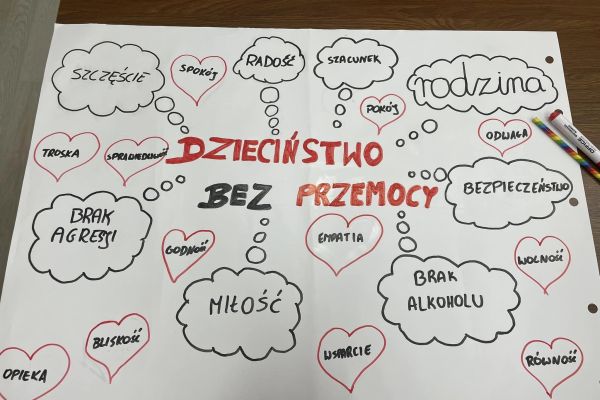 SZCZĘŚCIE
SPOKÓJ
RADOŚĆ
SZACUNEK
rodzina
POKÓJ
ODWAGA
TROSKA
SPRAWIEDLIWOŚĆ
DZIECIŃSTWO
BEZ PRZEMOCY
BEZPIECZEŃSTWO
BRAK
AGRESJI
GODNOŚĆ
EMPATIA
WOLNOŚĆ
MIŁOŚĆ
BRAK
ALKOHOLU
BLISKOŚĆ
WSPARCIE
RÓWNOŚĆ
OPIEKA